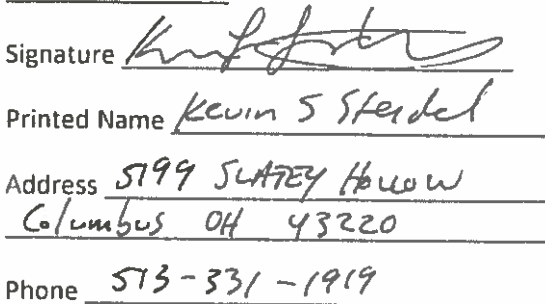 Signature
Printed Name Kevin S Steidel
Address 5199 SLATEY Hollow
Columbus OH 43220
Phone 513-331-1919